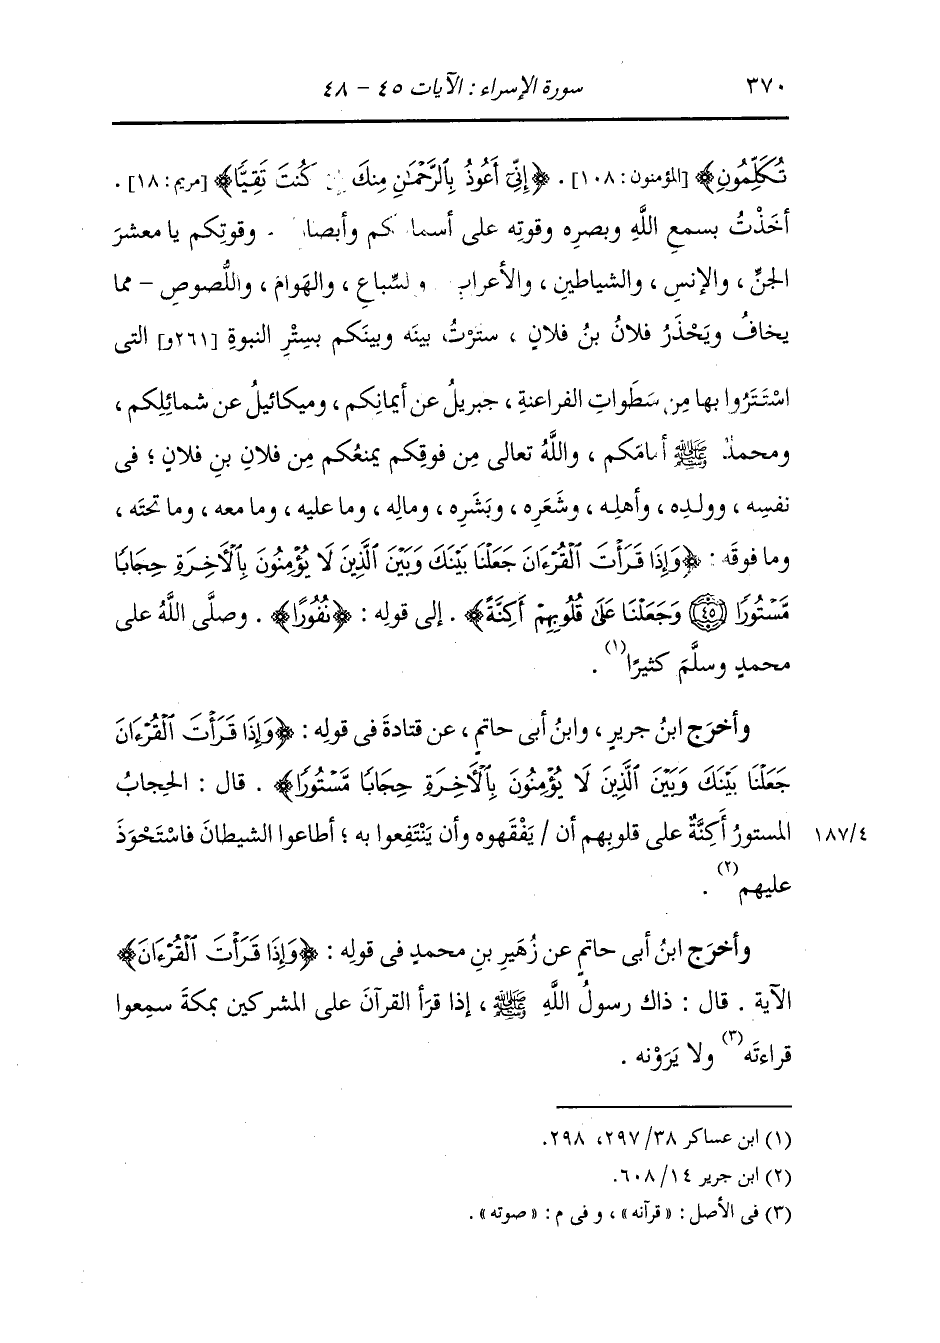 ٣٧٠ سورة الإسراء : الآيات ٤٥ – ٤٨
تُكَلِّمُونِ﴾ [المؤمنون : ١٠٨] . ﴿إِنِّىٓ أَعُوذُ بِٱلرَّحْمَٰنِ مِنكَ إِن كُنتَ تَقِيًّا﴾ [مريم : ١٨] .
أخَذْتُ بسمعِ اللَّهِ وبصرِه وقوتِه على أسماعكم وأبصاركم وقوتِكم يا معشرَ
الجنِّ ، والإنسِ ، والشياطينِ ، والأعرابِ ، والسِّباعِ ، والهَوامِّ ، واللُّصوصِ – مما
يخافُ ويَحْذَرُ فلانُ بنُ فلانٍ ، ستَرْتُ بينَه وبينَكم بسِتْرِ النبوةِ [٢٦١و] التى
اسْتَتَرُوا بها مِن سَطَواتِ الفراعنةِ ، جبريلُ عن أيمانِكم ، وميكائيلُ عن شمائلِكم ،
ومحمدٌ ﷺ أمامَكم ، واللَّهُ تعالى مِن فوقِكم يمنعُكم مِن فلانِ بنِ فلانٍ ؛ فى
نفسِه ، وولدِه ، وأهلِه ، وشَعَرِه ، وبَشَرِه ، ومالِه ، وما عليه ، وما معه ، وما تحتَه ،
وما فوقَه : ﴿وَإِذَا قَرَأْتَ ٱلْقُرْءَانَ جَعَلْنَا بَيْنَكَ وَبَيْنَ ٱلَّذِينَ لَا يُؤْمِنُونَ بِٱلْءَاخِرَةِ حِجَابًا
مَّسْتُورًا ﴿٤٥﴾ وَجَعَلْنَا عَلَىٰ قُلُوبِهِمْ أَكِنَّةً﴾ . إلى قولِه : ﴿نُفُورًا﴾ . وصلَّى اللَّهُ على
محمدٍ وسلَّمَ كثيرًا(١) .
وأخرَج ابنُ جريرٍ ، وابنُ أبى حاتمٍ ، عن قتادةَ فى قولِه : ﴿وَإِذَا قَرَأْتَ ٱلْقُرْءَانَ
جَعَلْنَا بَيْنَكَ وَبَيْنَ ٱلَّذِينَ لَا يُؤْمِنُونَ بِٱلْءَاخِرَةِ حِجَابًا مَّسْتُورًا﴾ . قال : الحِجابُ
المستورُ أَكِنَّةٌ على قلوبِهم أن / يَفْقَهوه وأن يَنْتَفِعوا به ؛ أطاعوا الشيطانَ فاسْتَحْوَذَ ١٨٧/٤
عليهم(٢) .
وأخرَج ابنُ أبى حاتمٍ عن زُهَيرِ بنِ محمدٍ فى قولِه : ﴿وَإِذَا قَرَأْتَ ٱلْقُرْءَانَ﴾
الآية . قال : ذاك رسولُ اللَّهِ ﷺ ، إذا قرَأ القرآنَ على المشركين بمكةَ سمِعوا
قراءتَه(٣) ولا يَرَوْنه .
(١) ابن عساكر ٣٨/ ٢٩٧، ٢٩٨.
(٢) ابن جرير ١٤/ ٦٠٨.
(٣) فى الأصل : « قرآنه » ، و فى م : « صوته » .